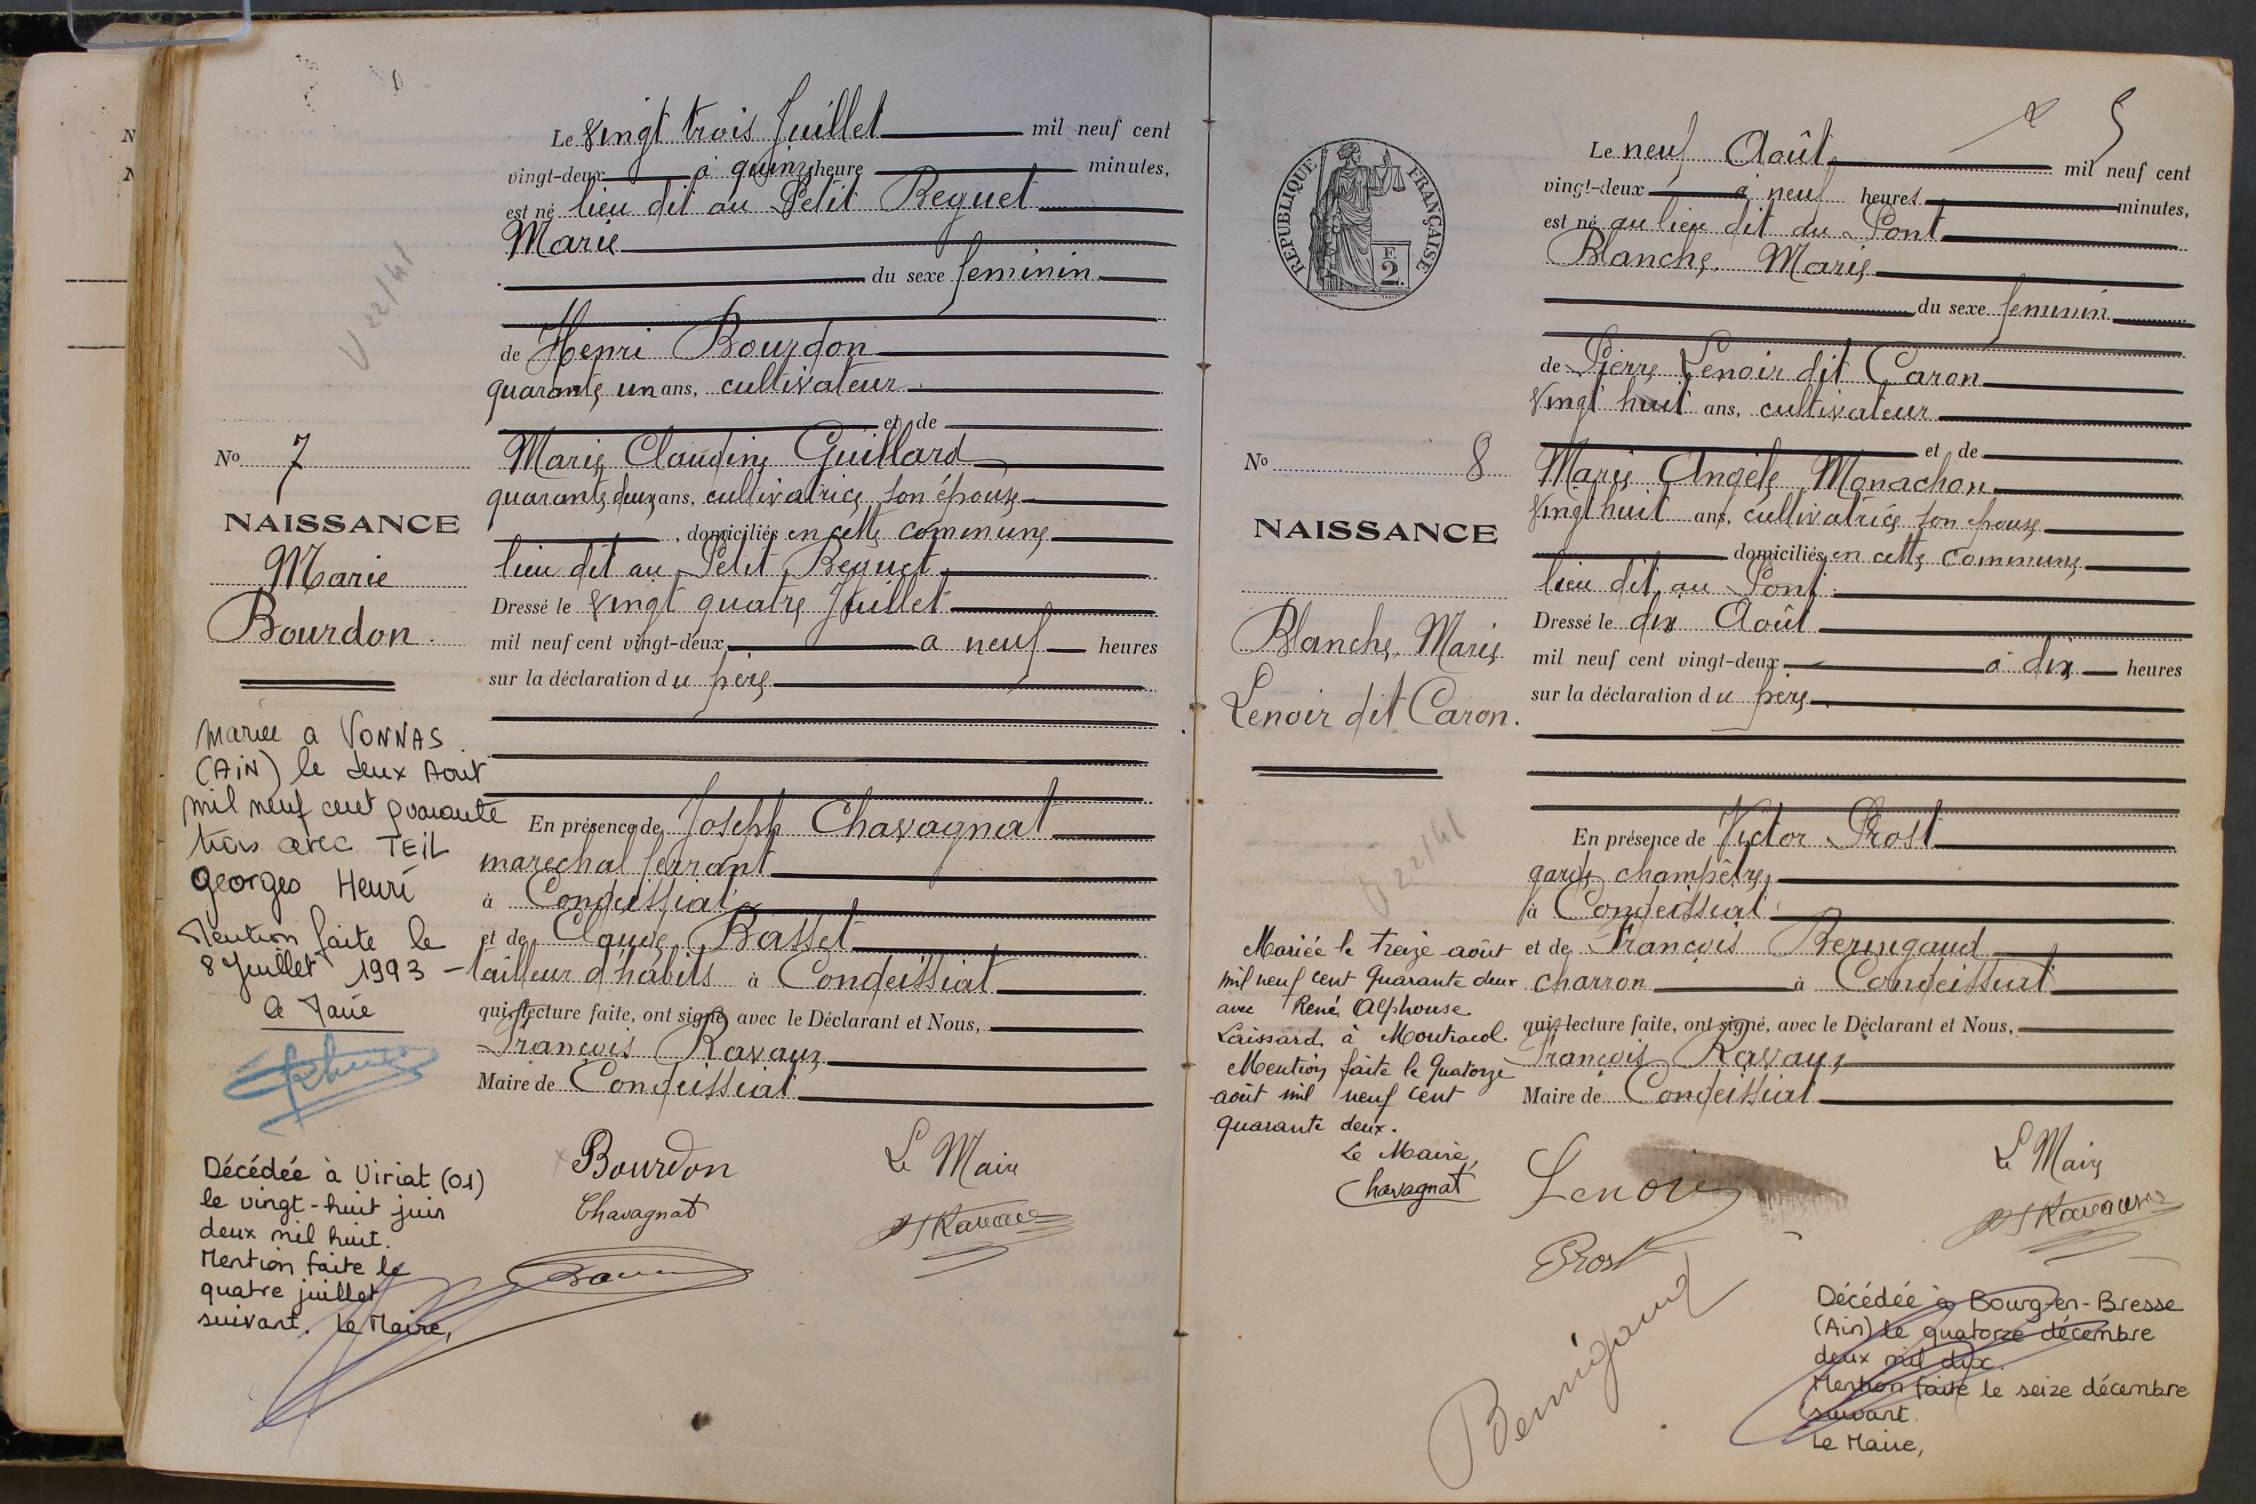 Le vingt trois Juillet mil neuf cent
vingt-deux à quinze heure minutes,
est né lieu dit au Petit Reguet
Marie
du sexe feminin
de Henri Bourdon
quarante un ans, cultivateur
et de
Marie Claudine Guillard
quarante deux ans, cultivatrice son épouse
, domiciliés en cette commune
lieu dit au Petit Reguet
Dressé le vingt quatre Juillet
mil neuf cent vingt-deux a neuf heures
sur la déclaration du père
En présence de Joseph Chavagnat
marechal ferrant
à Condeissiat
et de Claude Basset
tailleur d'habits à Condeissiat
qui, lecture faite, ont signé avec le Déclarant et Nous,
François Ravaux
Maire de Condeissiat
Bourdon
Le Maire
Chavagnat
No 7
NAISSANCE
Marie
Bourdon
Mariée a VONNAS
(AiN) le deux Aout
mil neuf cent quarante
trois avec TEIL
Georges Henri
Mention faite le
8 Juillet 1993 -
Le Maire
Décédée à Viriat (01)
le vingt-huit juin
deux mil huit.
Mention faite le
quatre juillet
suivant. Le Maire,
V 22/41
5
REPUBLIQUE FRANÇAISE
F.
2.
Le neuf Août mil neuf cent
vingt-deux à neuf heures minutes,
est né au lieu dit du Pont
Blanche, Marie
du sexe feminin
de Pierre Lenoir dit Caron
vingt huit ans, cultivateur
et de
Marie Angèle Monachon
vingt huit ans, cultivatrice son épouse
domiciliés en cette commune
lieu dit au Pont
Dressé le dix Août
mil neuf cent vingt-deux à dix heures
sur la déclaration du père
En présence de Victor Prost
garde champêtre,
à Condeissiat
et de François Beringaud
charron à Condeissiat
qui, lecture faite, ont signé, avec le Déclarant et Nous,
François Ravaux
Maire de Condeissiat
Lenoir
Le Maire
Prost
No 8
NAISSANCE
Blanche, Marie
Lenoir dit Caron.
22/41
Mariée le treize août
mil neuf cent quarante deux
avec René Alphonse
Laissard à Montracol.
Mention faite le quatorze
août mil neuf cent
quarante deux.
Le Maire,
Chavagnat
Décédée à Bourg-en-Bresse
(Ain) le quatorze décembre
deux mil dix.
Mention faite le seize décembre
suivant.
Le Maire,